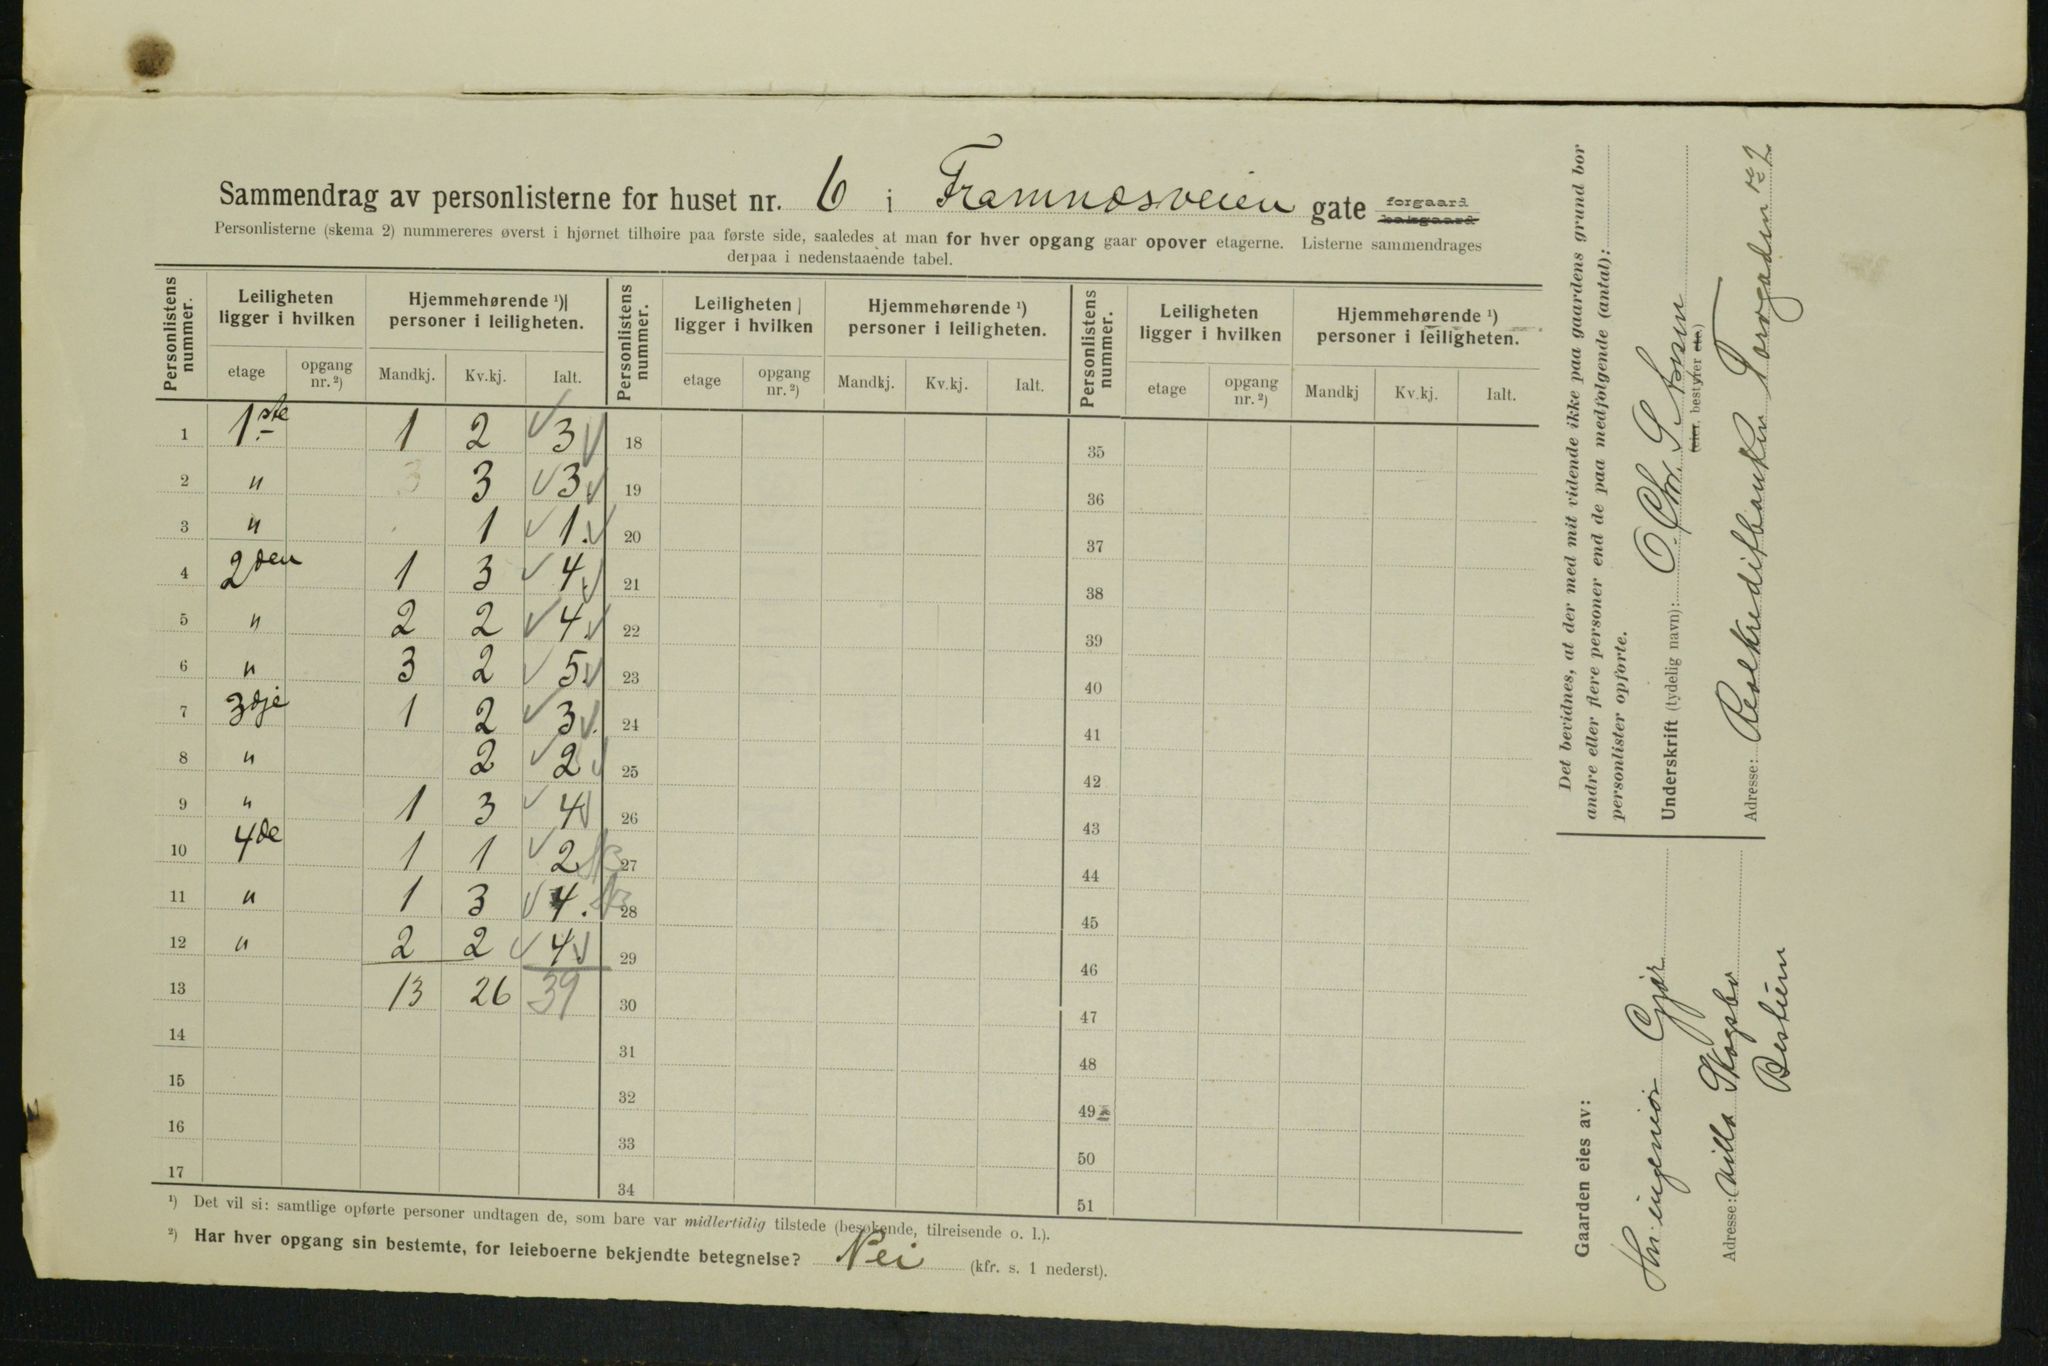 Sammendrag av personlisterne for huset nr. 6 i Framnæsveien gate forgaard bakgaard
Personlisterne (skema 2) nummereres øverst i hjørnet tilhøire paa første side, saaledes at man for hver opgang gaar opover etagerne. Listerne sammendrages
derpaa i nedenstaaende tabel.
Personlistens nummer. Leiligheten ligger i hvilken Hjemmehørende ¹) personer i leiligheten. Personlistens nummer. Leiligheten ligger i hvilken Hjemmehørende ¹) personer i leiligheten. Personlistens nummer. Leiligheten ligger i hvilken Hjemmehørende ¹) personer i leiligheten.
etage opgang nr. ²) Mandkj. Kv.kj. Ialt. etage opgang nr. ²) Mandkj. Kv.kj. Ialt. etage opgang nr. ²) Mandkj Kv.kj. Ialt.
1 1.ste 1 2 3 18 35
2 " 3 3 3 19 36
3 " 1 1. 20 37
4 2den 1 3 4 21 38
5 " 2 2 4. 22 39
6 " 3 2 5. 23 40
7 3dje 1 2 3. 24 41
8 " 2 2 25 42
9 " 1 3 4 26 43
10 4de 1 1 2 27 44
11 " 1 3 4. 28 45
12 " 2 2 4 29 46
13 13 26 39 30 47
14 31 48
15 32 49
16 33 50
17 34 51
¹) Det vil si: samtlige opførte personer undtagen de, som bare var midlertidig tilstede (besøkende, tilreisende o. l.).
²) Har hver opgang sin bestemte, for leieboerne bekjendte betegnelse? Nei (kfr. s. 1 nederst).
Det bevidnes, at der med mit vidende ikke paa gaardens grund bor
andre eller flere personer end de paa medfølgende (antal):
personlister opførte.
Underskrift (tydelig navn): O. Chr.
eier, bestyrer etc.)
Adresse: Realkreditbanken Torvgaden
Gaarden eies av:
Hr. ingeniør
Adresse: Villa Skogsbo
Bestun